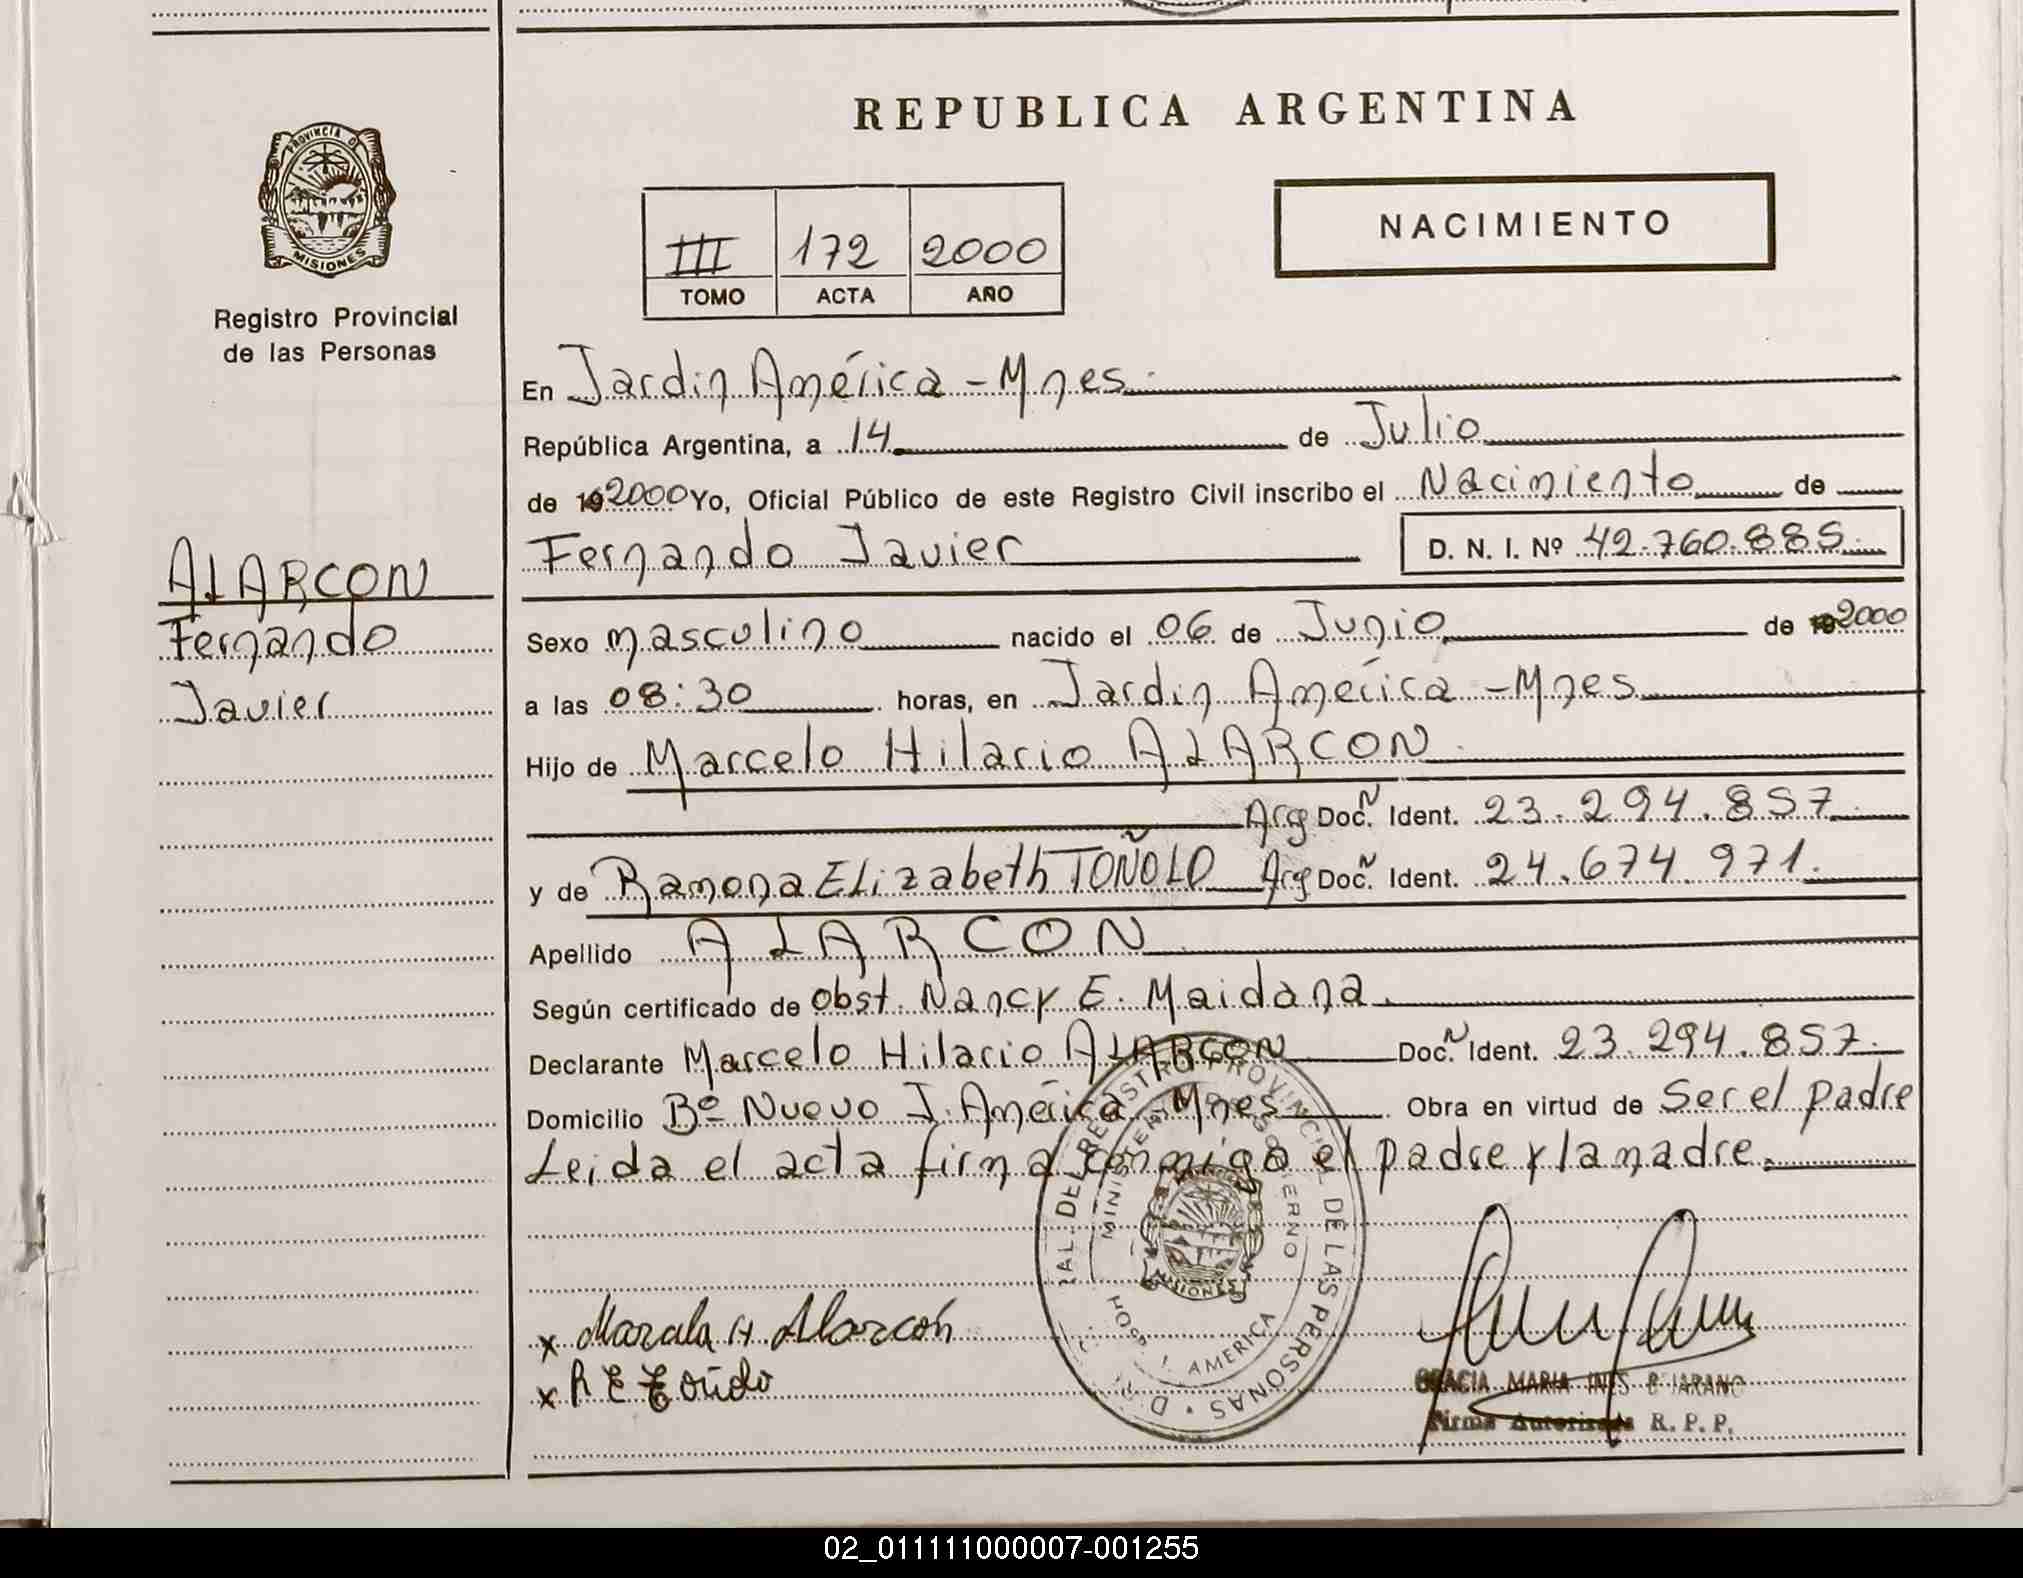 REPUBLICA ARGENTINA
PROVINCIA DE
MISIONES
Registro Provincial
de las Personas
NACIMIENTO
III 172 2000
TOMO ACTA AÑO
En Jardin América - Mnes.
República Argentina, a 14 de Julio
de 192000 Yo, Oficial Público de este Registro Civil inscribo el Nacimiento de
Fernando Javier D. N. I. Nº 42.760.885
ALARCON
Fernando
Javier
Sexo masculino nacido el 06 de Junio de 192000
a las 08:30 horas, en Jardin América - Mnes
Hijo de Marcelo Hilario ALARCON
Arg Doc. N Ident. 23.294.857
y de Ramona ELizabeth TOÑOLO Arg Doc. N Ident. 24.674.971
Apellido ALARCON
Según certificado de obst. Nancy E. Maidana
Declarante Marcelo Hilario ALARCON Doc. N Ident. 23.294.857
Domicilio Bº Nuevo J. América Mnes Obra en virtud de Ser el padre
Leida el acta firma conmigo el padre y la madre.
REGISTRO PROVINCIAL DE LAS PERSONAS
MINISTERIO DE GOBIERNO
MISIONES
HOSP. J. AMERICA
x Marcelo H. Alarcón
x R E Toñolo
GRACIA MARIA INES BEJARANO
Firma Autorizada R. P. P.
02_011111000007-001255